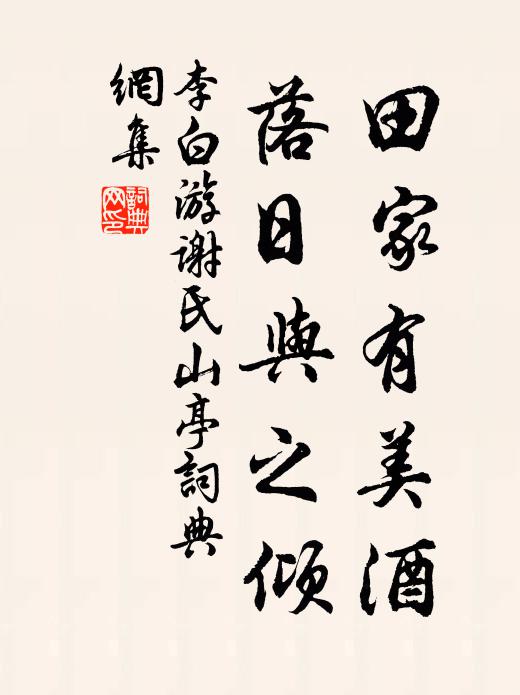 田家有美酒
落日與之傾
李白游謝氏山亭詞典
網集
詞典网印